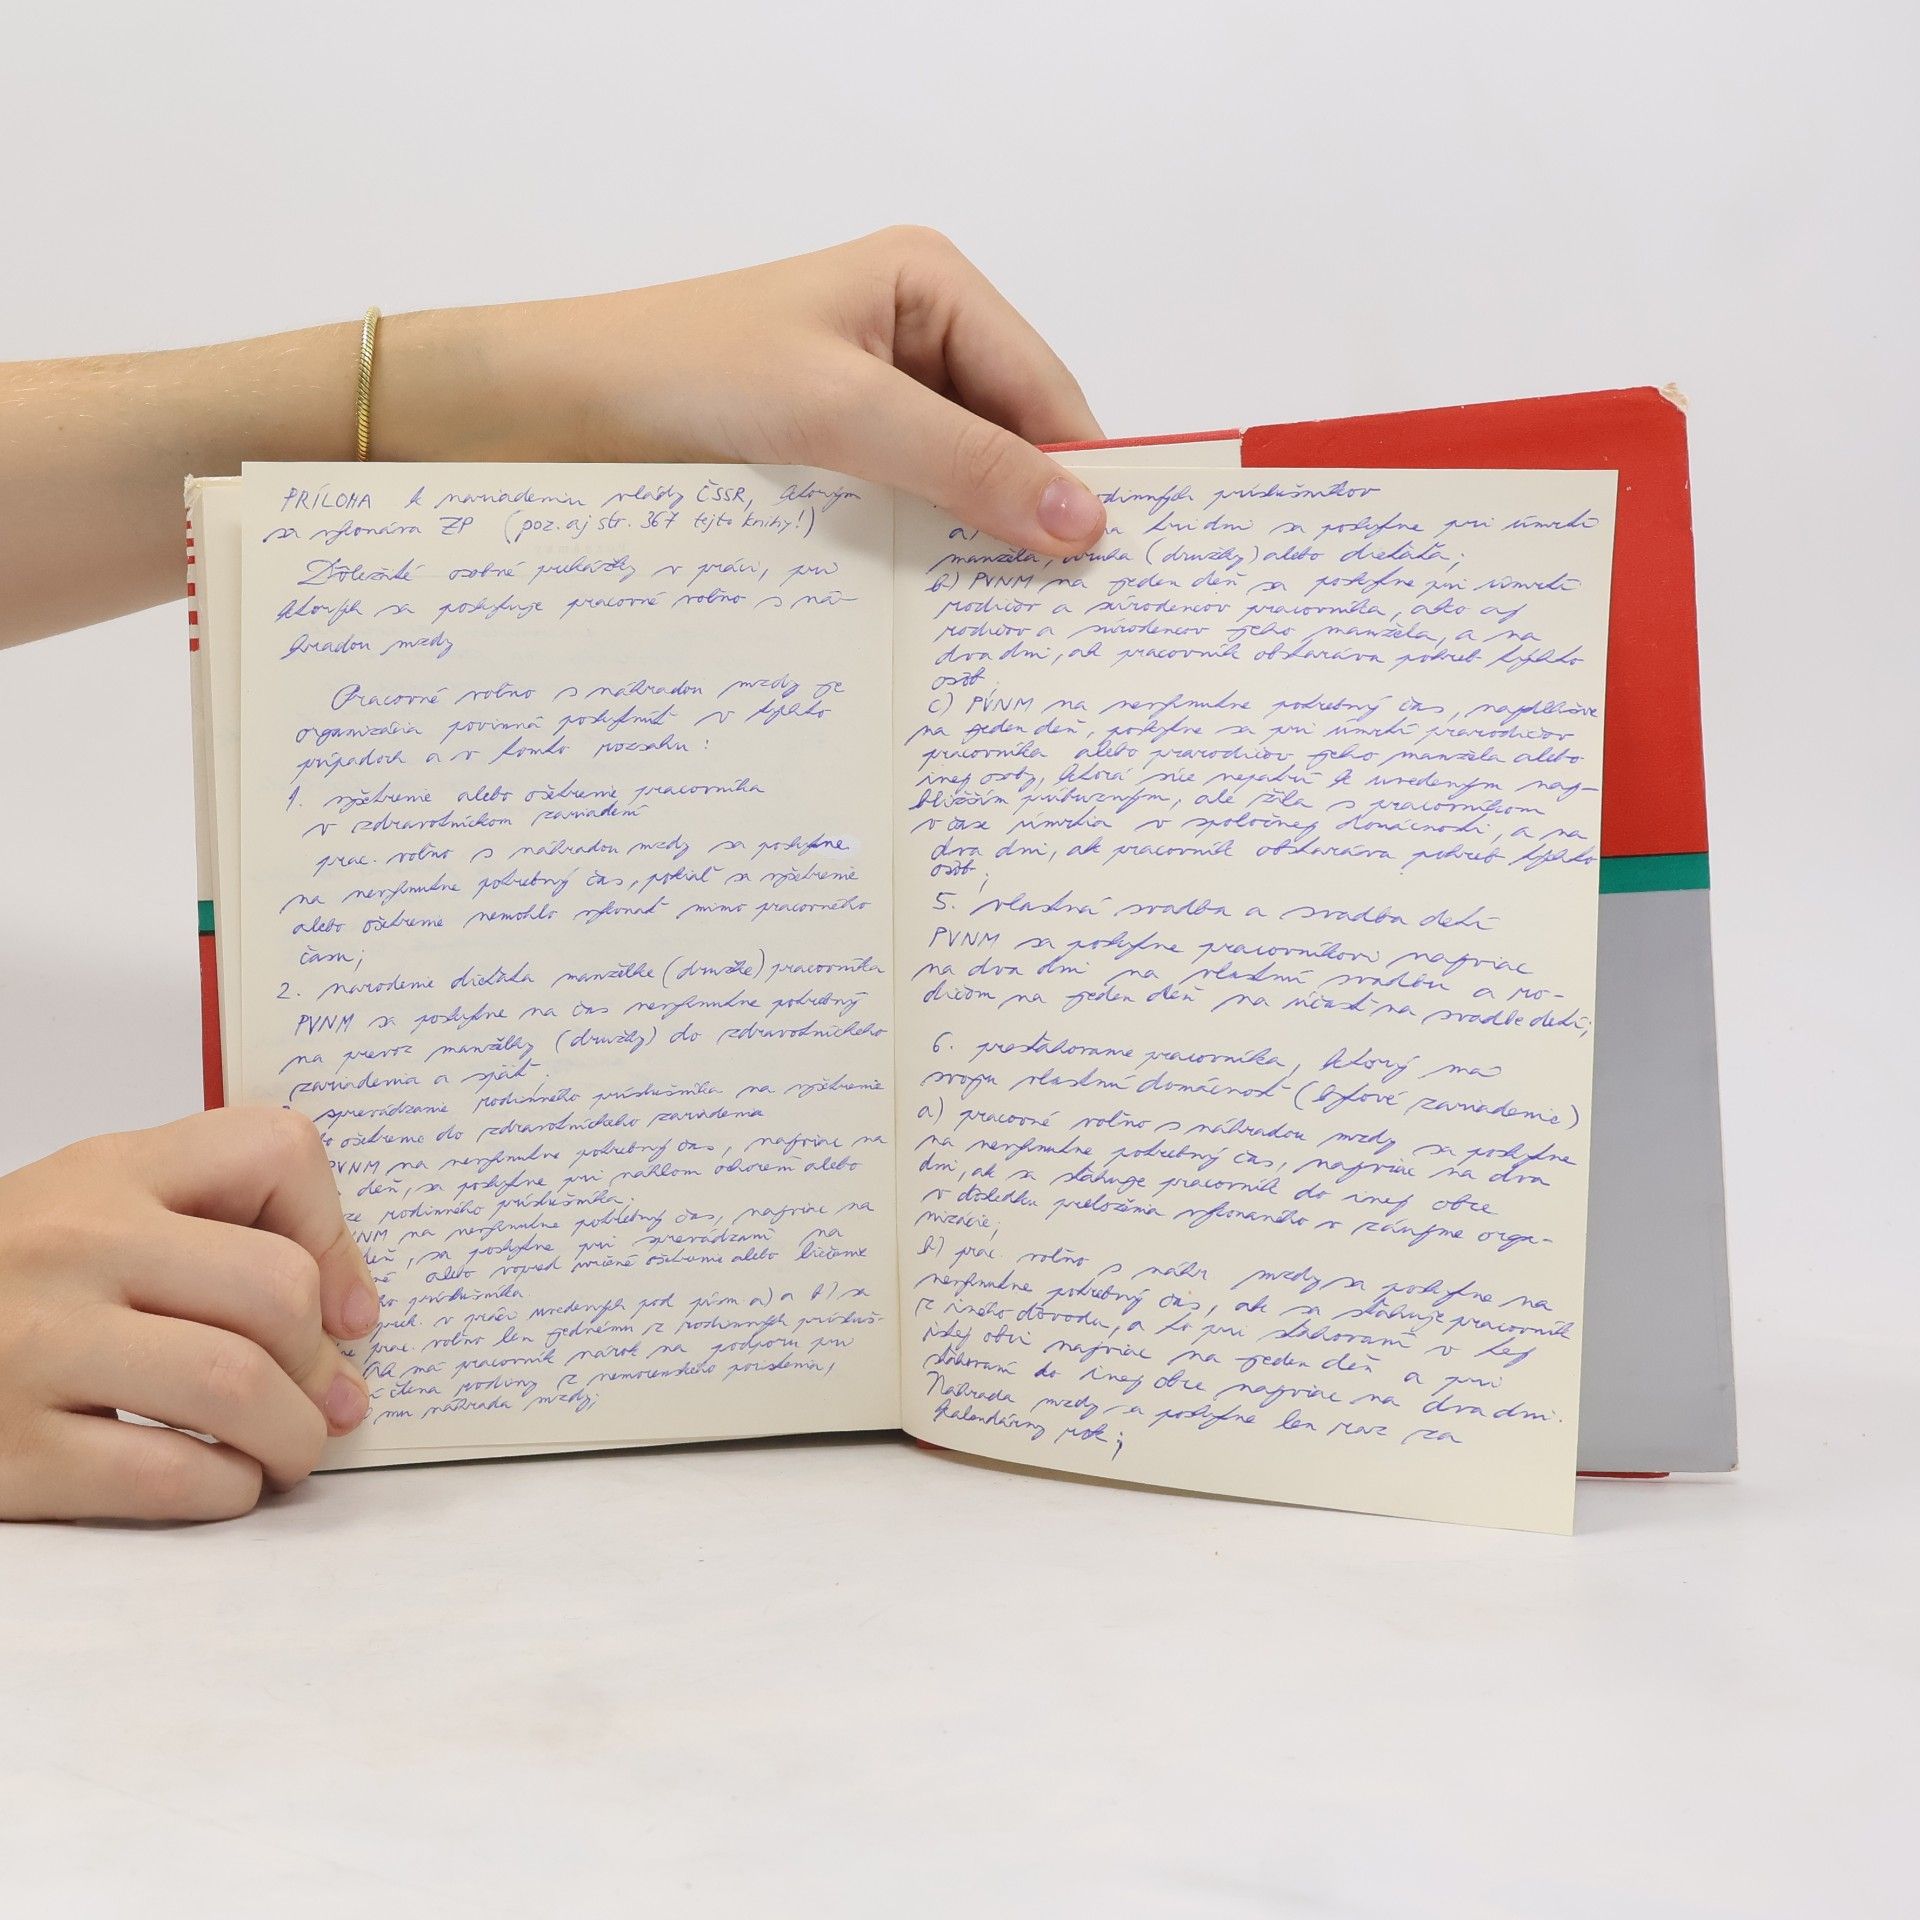 PRÍLOHA k nariadeniu vlády ČSSR, ktorým
sa vykonáva ZP (poz. aj str. 367 tejto knihy!)
Dôležité osobné prekážky v práci, pri
ktorých sa poskytuje pracovné voľno s ná-
hradou mzdy
Pracovné voľno s náhradou mzdy je
organizácia povinná poskytnúť v týchto
prípadoch a v tomto rozsahu:
1. vyšetrenie alebo ošetrenie pracovníka
v zdravotníckom zariadení
prac. voľno s náhradou mzdy sa poskytne
na nevyhnutne potrebný čas, pokiaľ sa vyšetrenie
alebo ošetrenie nemohlo vykonať mimo pracovného
času;
2. narodenie dieťaťa manželke (družke) pracovníka
PVNM sa poskytne na čas nevyhnutne potrebný
na prevoz manželky (družky) do zdravotníckeho
zariadenia a späť.
sprevádzanie rodinného príslušníka na vyšetrenie
ošetrenie do zdravotníckeho zariadenia
PVNM na nevyhnutne potrebný čas, najviac na
deň, sa poskytne pri náhlom ochorení alebo
rodinného príslušníka.
na nevyhnutne potrebný čas, najviac na
deň, sa poskytne pri sprevádzaní na
alebo vopred určené ošetrenie alebo liečenie
príslušníka.
prek. v práci uvedených pod písm a) a b) sa
prac. voľno len jednému z rodinných prísluš-
Ak má pracovník nárok na podporu pri
člena rodiny z nemocenského poistenia,
mu náhrada mzdy;
rodinných príslušníkov
a) tri dni sa poskytne pri úmrtí
manžela, druha (družky) alebo dieťaťa;
b) PVNM na jeden deň sa poskytne pri úmrtí
rodičov a súrodencov pracovníka, ako aj
rodičov a súrodencov jeho manžela, a na
dva dni, ak pracovník obstaráva pohreb týchto
osôb.
c) PVNM na nevyhnutne potrebný čas, najdlhšie
na jeden deň, poskytne sa pri úmrtí prarodičov
pracovníka alebo prarodičov jeho manžela alebo
inej osoby, ktorá síce nepatrí k uvedeným naj-
bližším príbuzným, ale žila s pracovníkom
v čase úmrtia v spoločnej domácnosti, a na
dva dni, ak pracovník obstaráva pohreb týchto
osôb;
5. vlastná svadba a svadba detí
PVNM sa poskytne pracovníkovi najviac
na dva dni na vlastnú svadbu a ro-
dičom na jeden deň na účasť na svadbe detí;
6. presťahovanie pracovníka, ktorý má
svoju vlastnú domácnosť (bytové zariadenie)
a) pracovné voľno s náhradou mzdy sa poskytne
na nevyhnutne potrebný čas, najviac na dva
dni, ak sa sťahuje pracovník do inej obce
v dôsledku preloženia vykonaného v záujme orga-
nizácie;
b) prac. voľno s náhr mzdy sa poskytne na
nevyhnutne potrebný čas, ak sa sťahuje pracovník
z iného dôvodu, a to pri sťahovaní v tej
istej obci najviac na jeden deň a pri
sťahovaní do inej obce najviac na dva dni.
Náhrada mzdy sa poskytne len raz za
kalendárny rok;